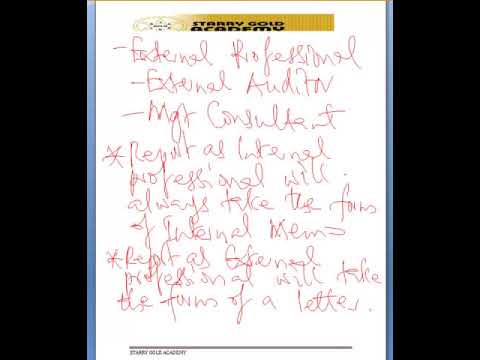 STARRY GOLD
ACADEMY
- External Professional
- External Auditor
- Mgt Consultant
* Report as Internal
professional will
always take the form
of Internal Memo
* Report as External
professional will take
the form of a letter.
STARRY GOLD ACADEMY